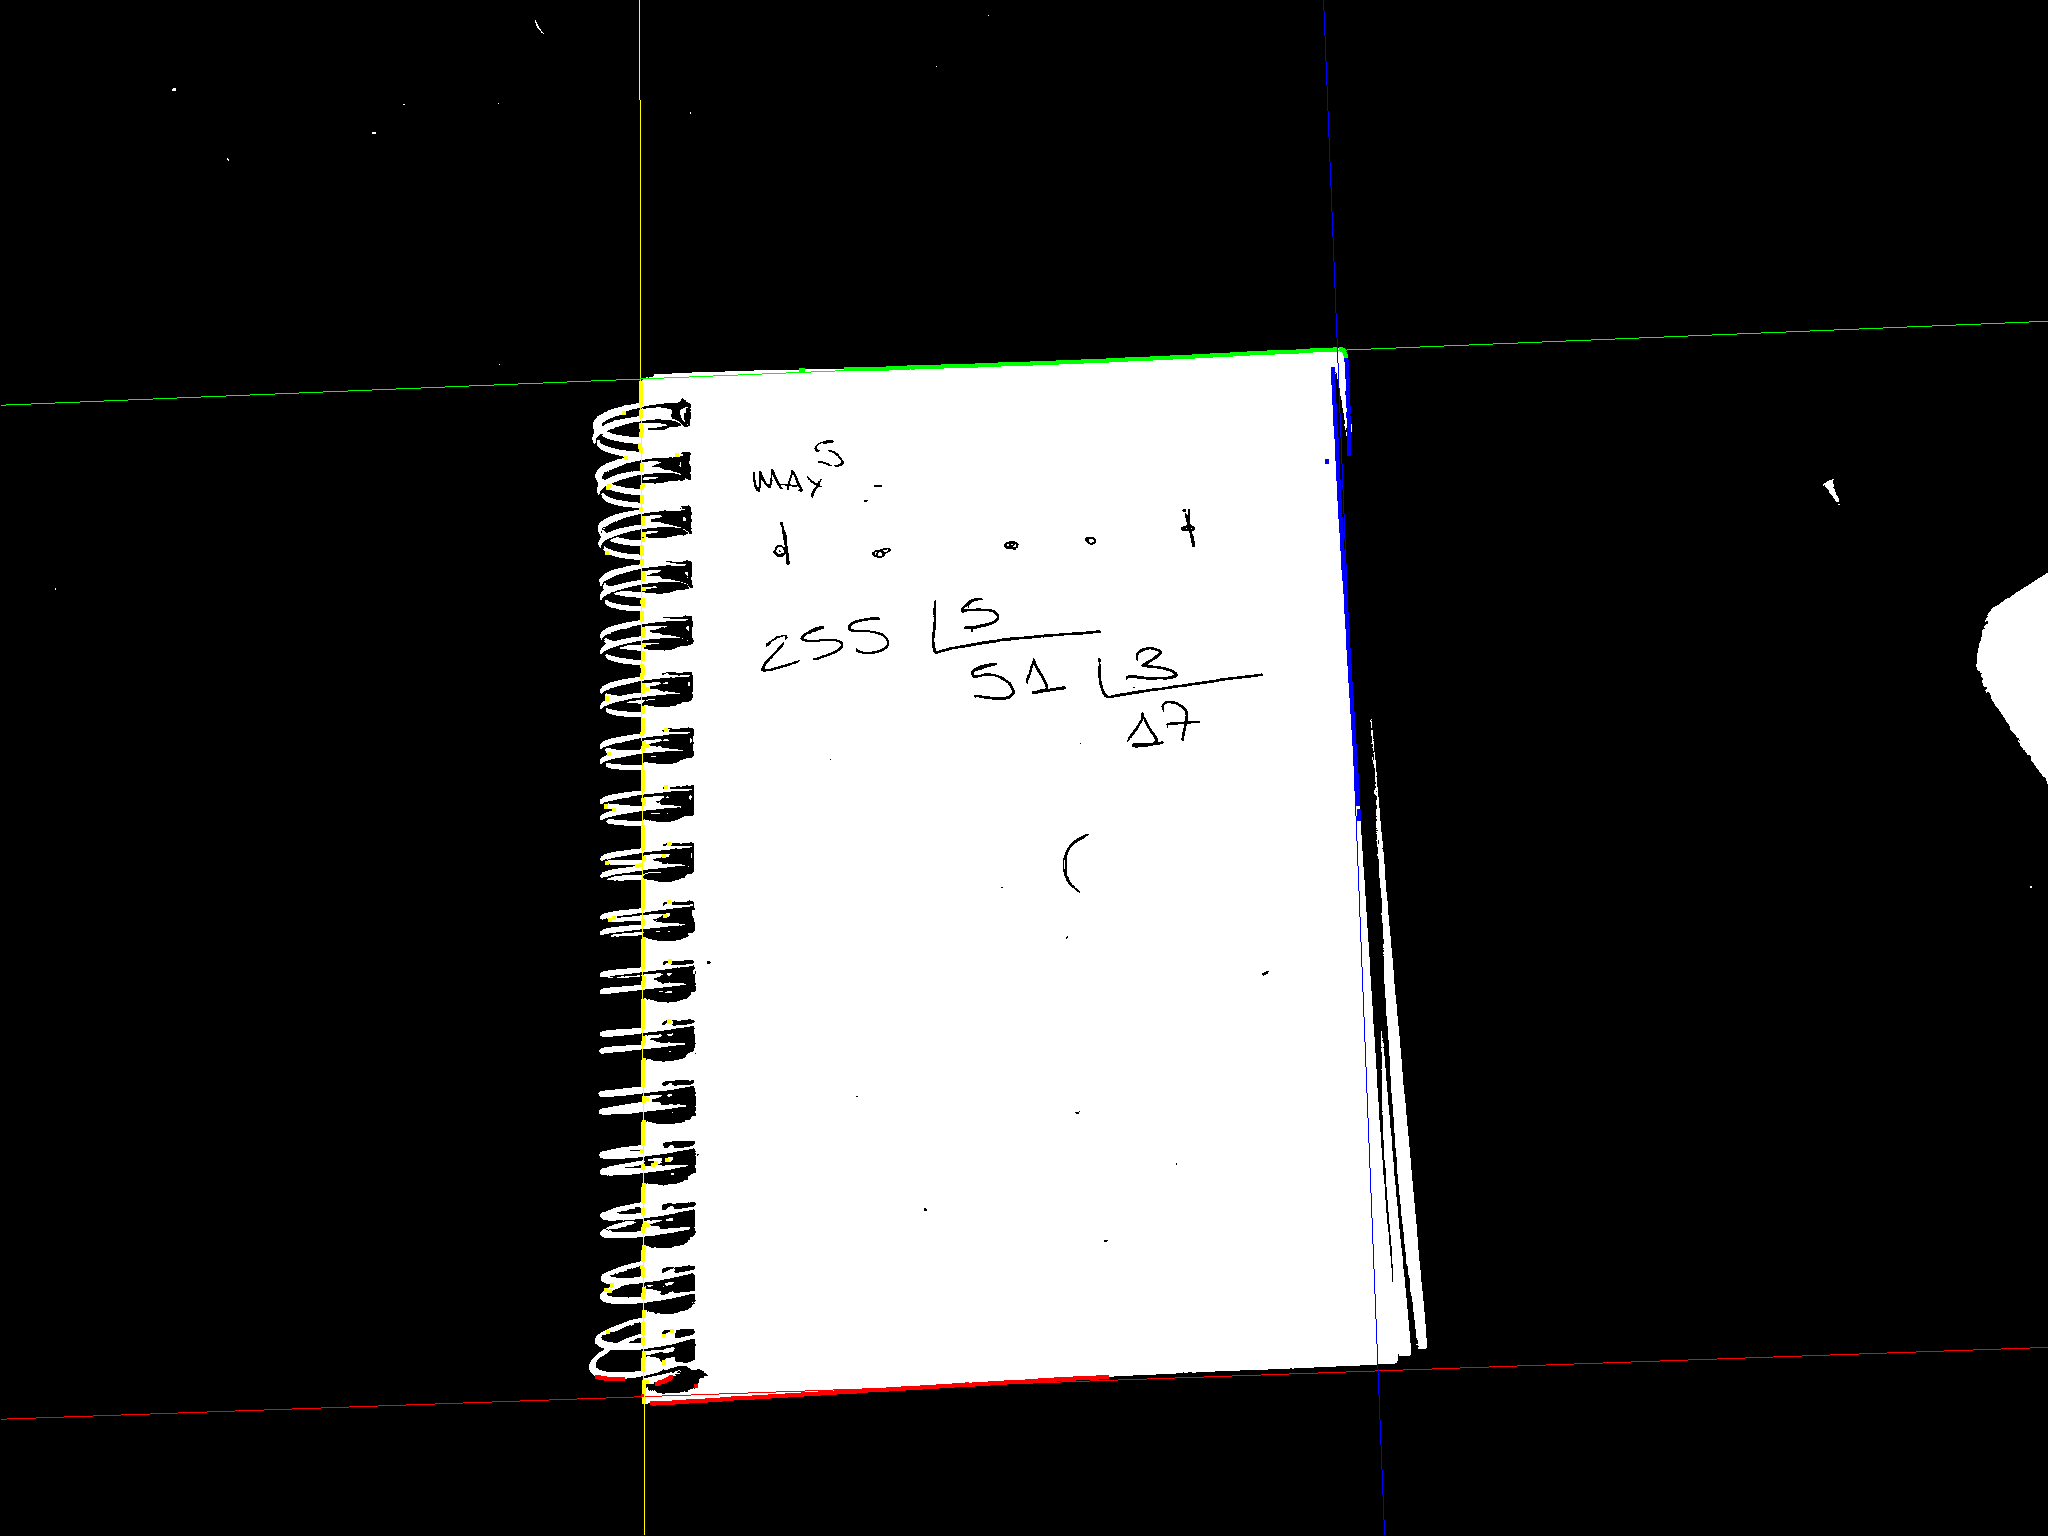 MAX 5
255 5
51 3
17
(